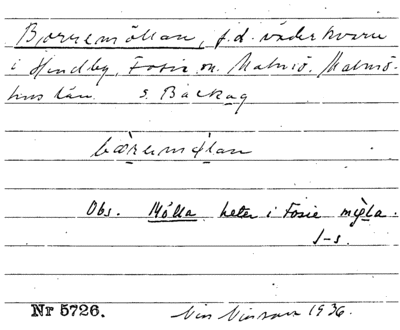 Borremöllan, f.d. väderkvarn
i Hindby, Fosie sn. Malmö. Malmö-
hus län. S. Bäckag
bœ̀rremø̀lan
Obs. Mölla heter i Fosie mø̀la.
J-s.
Nr 5726. 1936.